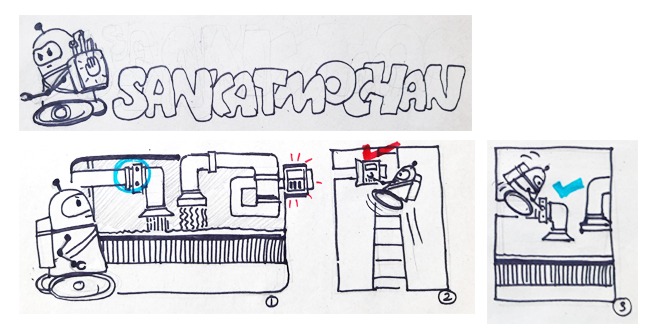 SANKATMOCHAN
1
2
3